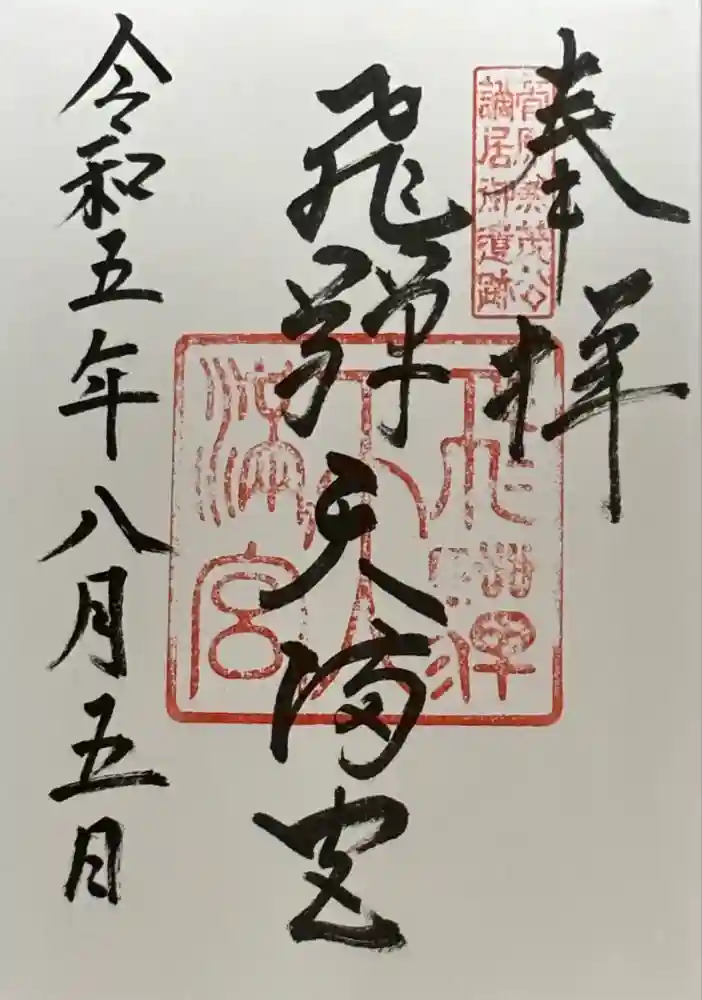 奉拝
菅原兼茂公
謫居御遺跡
飛騨天満宮
飛騨
天
満宮
令和五年八月五日